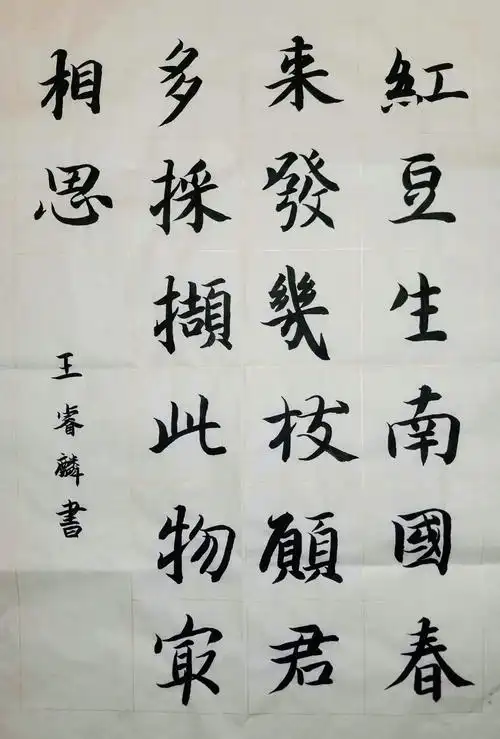 紅豆生南國春
来發幾枝願君
多採擷此物㝡
相思
王睿麟書